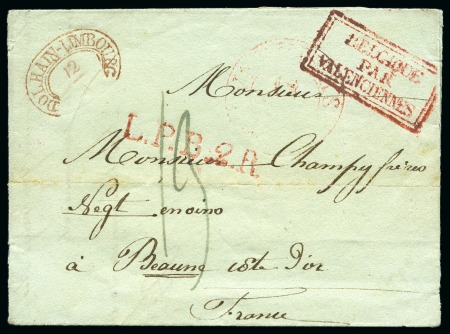 DOLHAIN-LIMBOURG
12
BELGIQUE
PAR
VALENCIENNES
Monsieur
L.P.B.2.R
Monsieur Champy frères
Negt en vins
à Beaune côte d'or
France